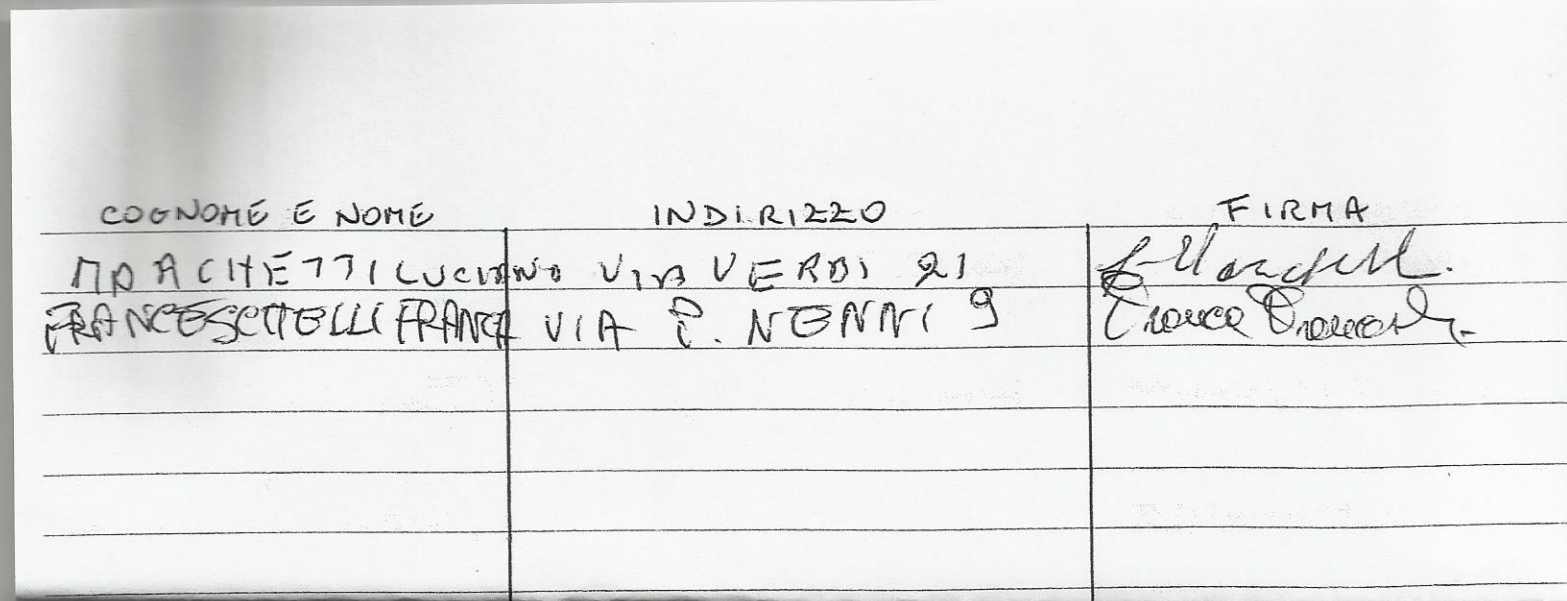 COGNOME E NOME INDIRIZZO FIRMA
LUCIANO VIA VERDI 21
FRANCESCHELLI FRANCA VIA P. NENNI 9 Franca